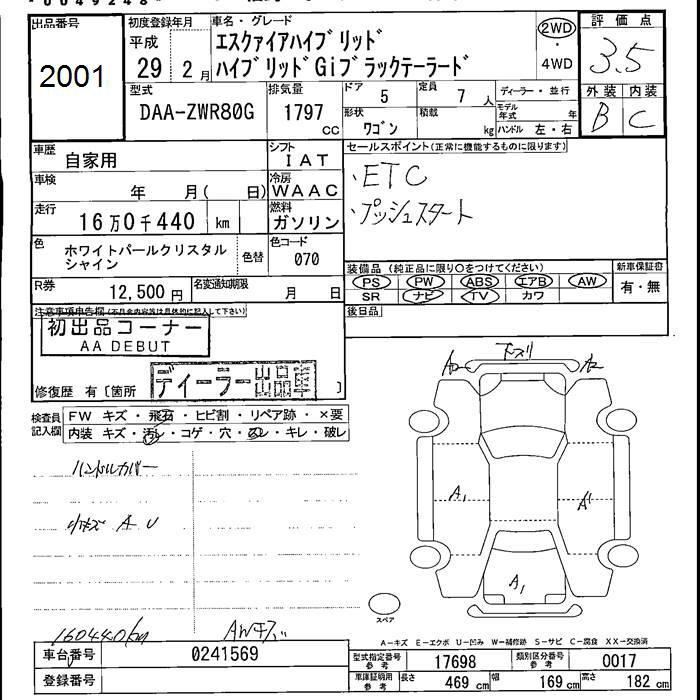 出品番号
2001
初度登録年月
平成
29 2月
車名・グレード
エスクァイアハイブリッド
ハイブリッドGiブラックテーラード
2WD
4WD
評価点
3.5
外装 内装
B C
型式
DAA-ZWR80G
排気量
1797
cc
ドア 5
定員 7人
形状 ワゴン
積載 kg
ディーラー・並行
モデル年式 年
ハンドル 左・右
車歴
自家用
シフト
IAT
車検
年 月( 日)
冷房
WAAC
走行
16万0千440 km
燃料
ガソリン
色
ホワイトパールクリスタル
シャイン
色替
色コード
070
R券
12,500円
名変通知期限
月 日
セールスポイント(正常に機能するものに限ります)
・ETC
・プッシュスタート
装備品 (純正品に限り○をつけてください)
PS PW ABS エアB AW
SR ナビ TV カワ
新車保証書
有・無
後日品
注意事項申告欄(不具合内容等は具体的に記入して下さい)
初出品コーナー
AA DEBUT
ディーラー出品車
修復歴 有〔箇所 〕
検査員
記入欄
FW キズ・飛石・ヒビ割・リペア跡・×要
内装 キズ・汚レ・コゲ・穴・スレ・キレ・破レ
ハンドルカバー
小キズ A U
160440km
AWキズ
下スリ
A2
A2
A1
A1
A1
スペア
A-キズ E-エクボ U-凹み W-補修跡 S-サビ C-腐食 XX-交換済
車台番号
0241569
登録番号
型式指定番号
参考
17698
類別区分番号
参考
0017
車庫証明用
参考
長さ 469 cm
幅 169 cm
高さ 182 cm